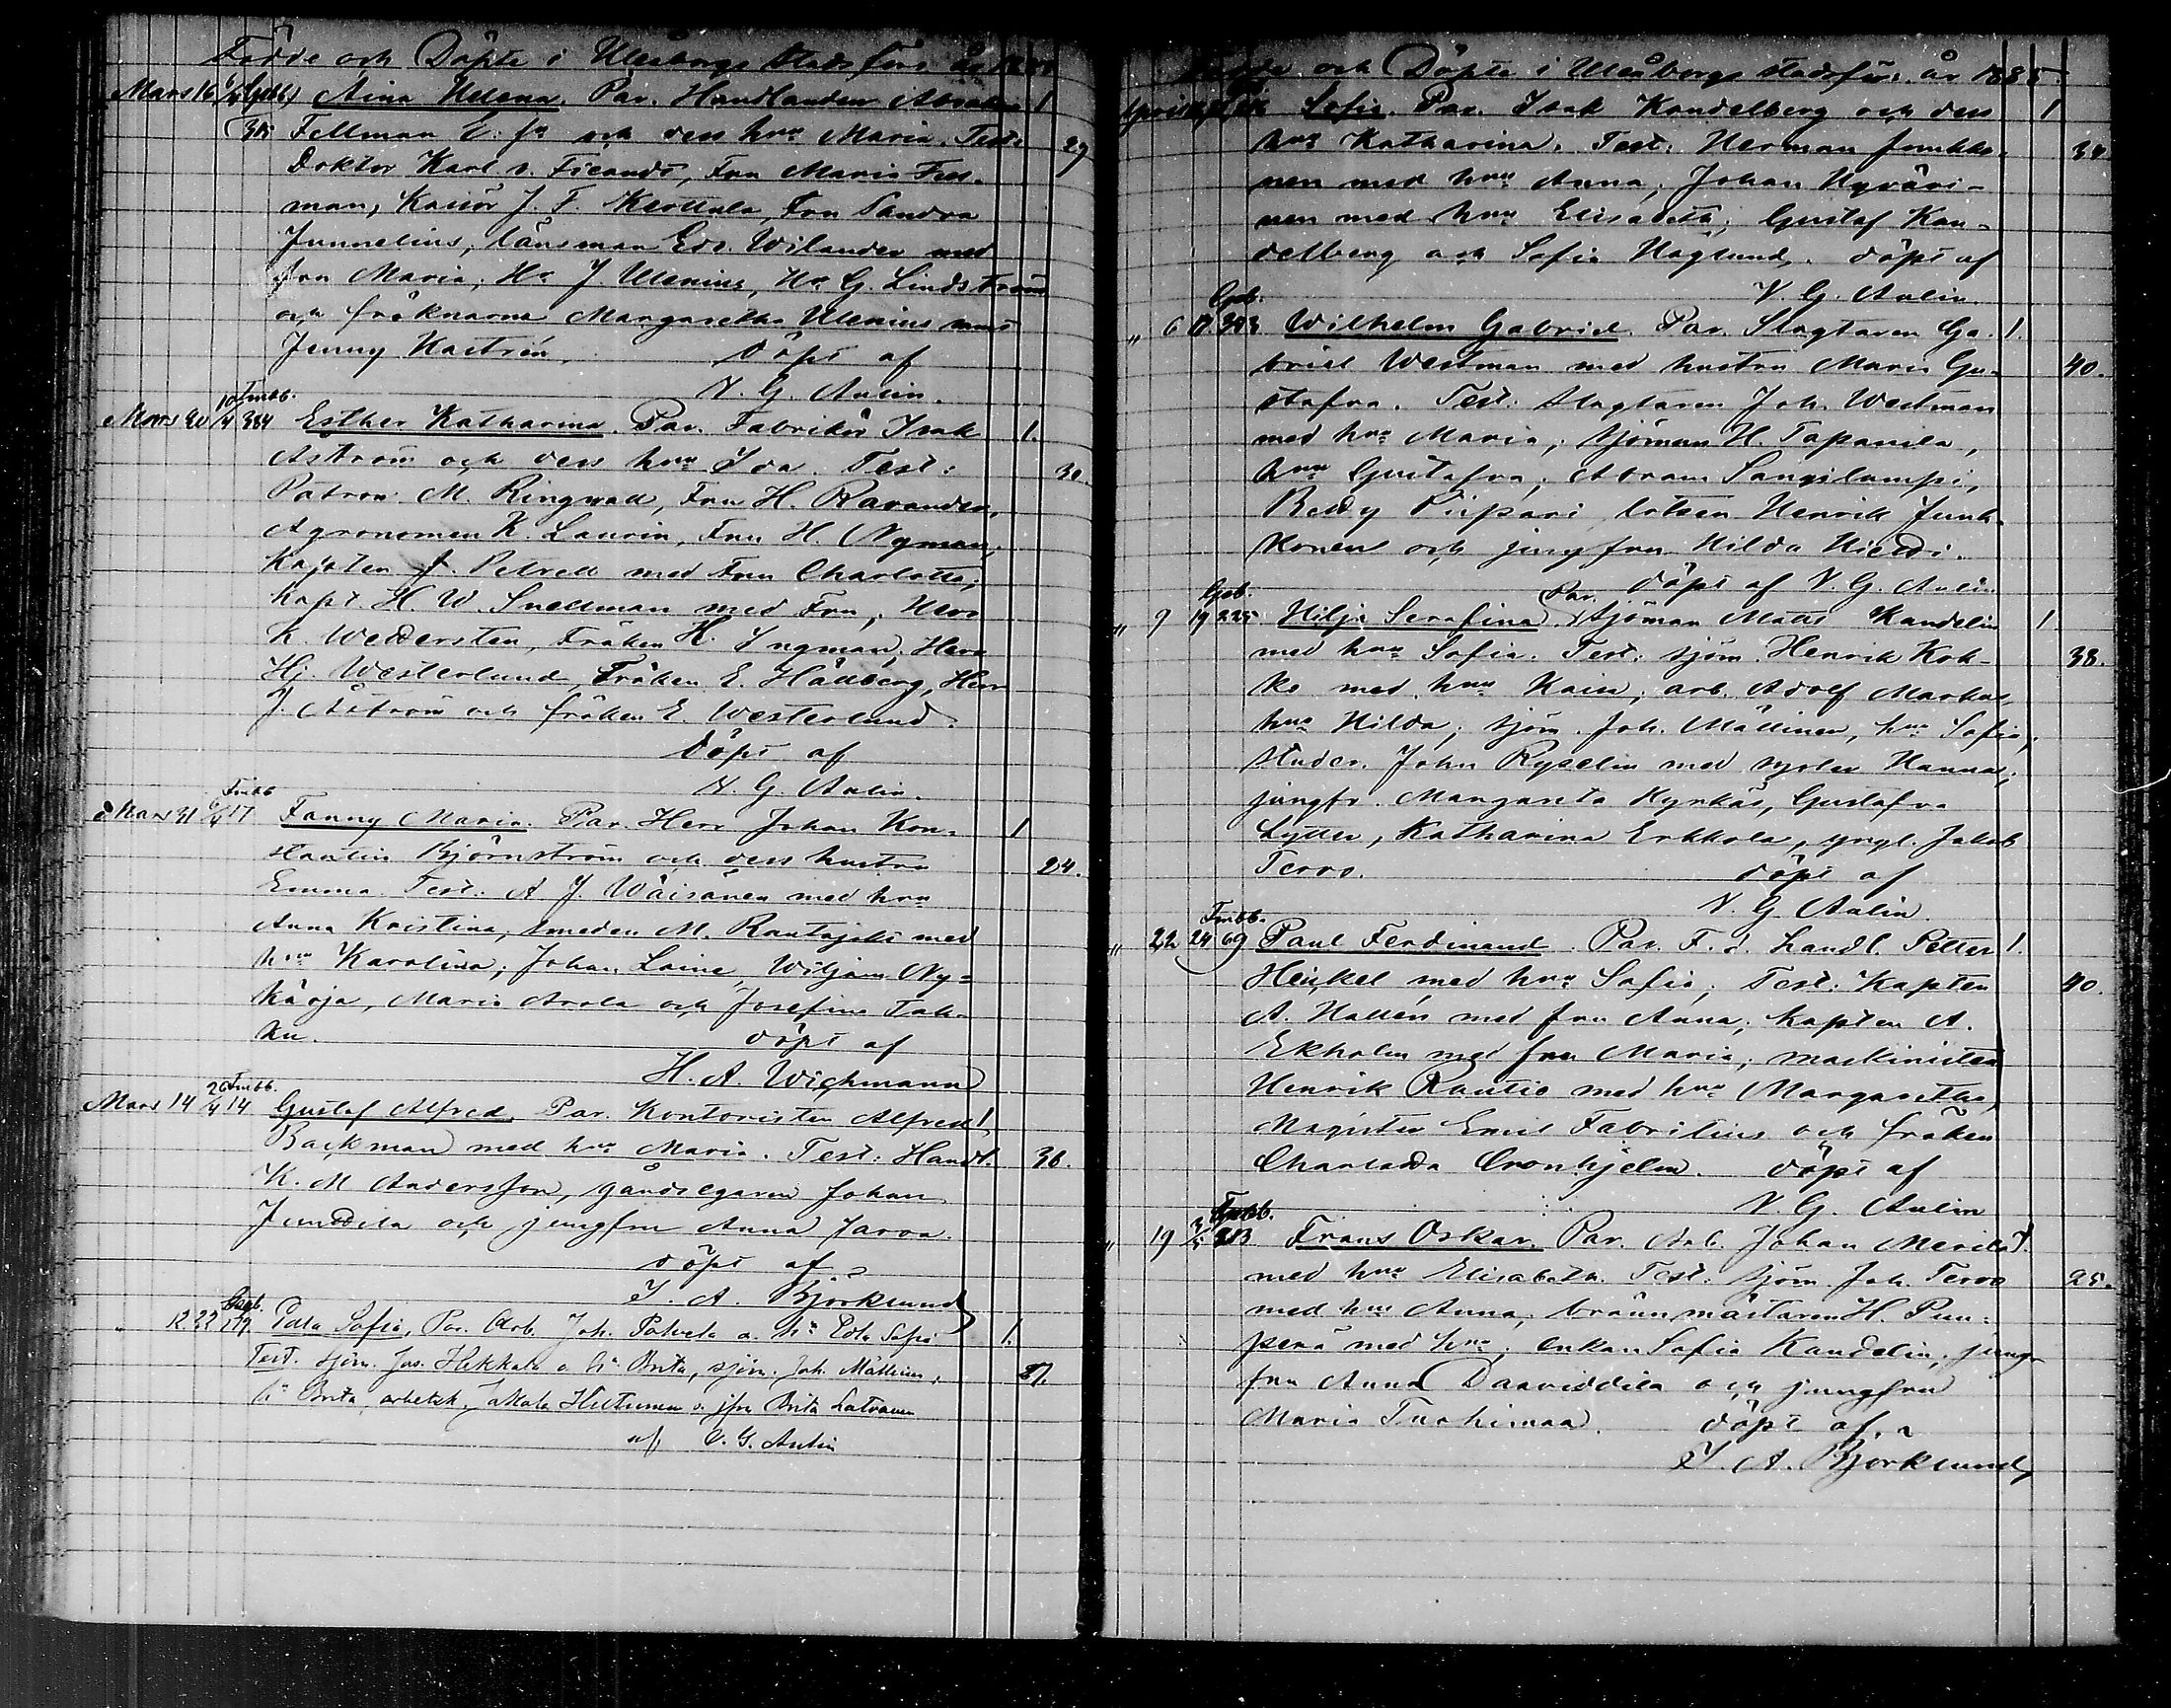 Födde och Döpte i Uleåborgs Stadsförs. år 1885
Mars 16 6/4 Aina Helena. Par. Handlanden Abraham 1
Fellman och dess hru Maria. Test: 29
Doktor Karl v. Fieandt, Fru Maria Fell-
man, Kassör J. F. Kerttula, Fru Sandra
Junnelius, länsman Edv. Wilander med
fru Maria; Hr J. Ulenius, Hr G. Lindström
och fröknarna Margaretha Ulenius med
Jenny Kastrén. Döpt af
V. G. Aulin.
Mars 20 10/4 384 Esther Katharina. Par. Fabrikör Isak 1.
Aström och dess hru Ida. Test: 30.
Patron M. Ringwall, Fru H. Ravander,
Agronomen K. Laurin, Fru H. Nyman,
Kapten J. Petrell med Fru Charlotta;
Kapt H. W. Snellman med Fru, Herr
K. Weddersten, Fröken H. Ingman, Herr
Hj. Westerlund, Fröken E. Hällberg, Herr
J. Åström och fröken E. Westerlund.
Döpt af
V. G. Aulin.
Mars 31 6/4 17 Fanny Maria. Par. Herr Johan Kon- 1
stantin Björnström och dess hustru 24.
Emma. Test: A J. Wäisänen med hru
Anna Kristina, smeden M. Rantajski med
hru Karolina; Johan Laine, Wiljam Ny-
kärja, Maria Arola och Josefina Tah-
ku. döpt af
H. A. Wichmann
Mars 14 20/4 14 Gustaf Alfred Par. Kontoristen Alfred 1.
Backman med hru Maria. Test: Handl. 36.
K. M Andersson, gårdsegaren Johan
Junttila och jungfru Anna Jarva.
döpt af
I. A. Björklund
12 22 Edla Sofia, Par. Arb. Joh. Palvela o. h. Edla Sofia 1.
Test. sjöm. Jos. Hekkala o. h. Brita, sjöm. Joh. Mällinen,
h. Brita, arbetsk. Jakob Huttunen o. jfru Brita Latvanen
af V. G. Aulin
Födde och Döpte i Uleåborgs stadsförs. år 1885
April Sofia. Par. Isak Kandelberg och dess 1
hru Katharina. Test: Herman Junkko- 34
nen med hru Anna, Johan Hyväri-
nen med hru Elisabeth; Gustaf Kan-
delberg och Sofia Haglund. döpt af
V. G. Aulin
„ 6 17 Wilhelm Gabriel. Par. Slagtaren Ga- 1.
briel Westman med hustru Maria Gu- 40.
stafva. Test: Slagtaren Joh. Westman
med hru Maria; sjöman H. Tapanila,
hru Gustafva; Abram Sangilampi,
Piipari, lotsen Henrik Junk-
konen och jungfru Hilda
döpt af V. G. Aulin
„ 9 19 225 Hilja Serafina Par. Sjöman Matts Kandelin 1
med hru Sofia. Test: sjöm. Henrik Kok- 38.
ko med hru Kaisa; arb. Adolf Markus,
hru Hilda; sjöm. Joh. Mällinen, hru Sofia;
studer. John Ryselin med syster Hanna;
jungfr. Margareta Hyrkäs, Gustafva
Lytter, Katharina Erkkola, yngl. Jakob
Tervo. döpt af
V. G. Aulin.
„ 22 24 69 Paul Ferdinand. Par. F. d. Landl. Petter 1.
Heickel med hru Sofia; Test: Kapten 40.
A. Hallén med fru Anna; Kapten A.
Ekholm med fru Maria; maskinisten
Henrik Rautio med hru Margaretha,
Magister Emil Fabritius och fröken
Charlotta Cronhjelm. döpt af
V. G. Aulin
„ 19 Frans Oskar. Par. Arb. Johan Merilä 1.
med hru Elisabeth. Test: sjöm. Joh. Tervo 25.
med hru Anna, brännmästaren H. Pun-
perä med hru; enkan Sofia Kandelin; jung-
fru Anna Daaviddila och jungfru
Maria Tuohimaa. döpt af
I. A. Björklund